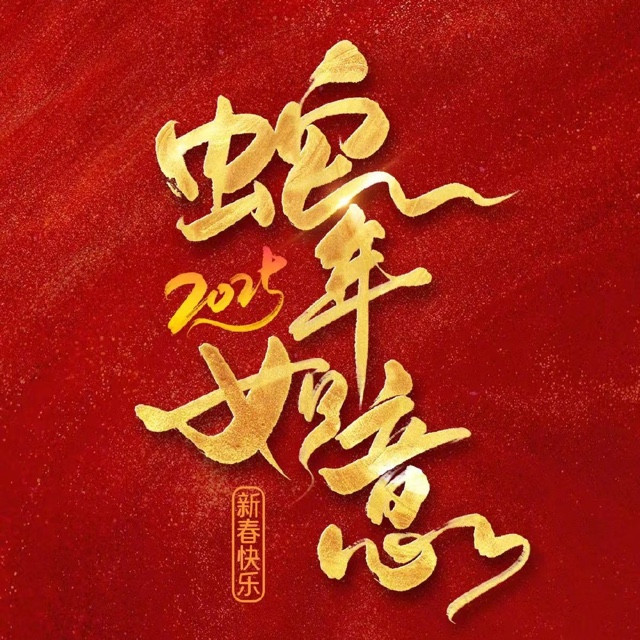 蛇年
2025
如意
新春快乐